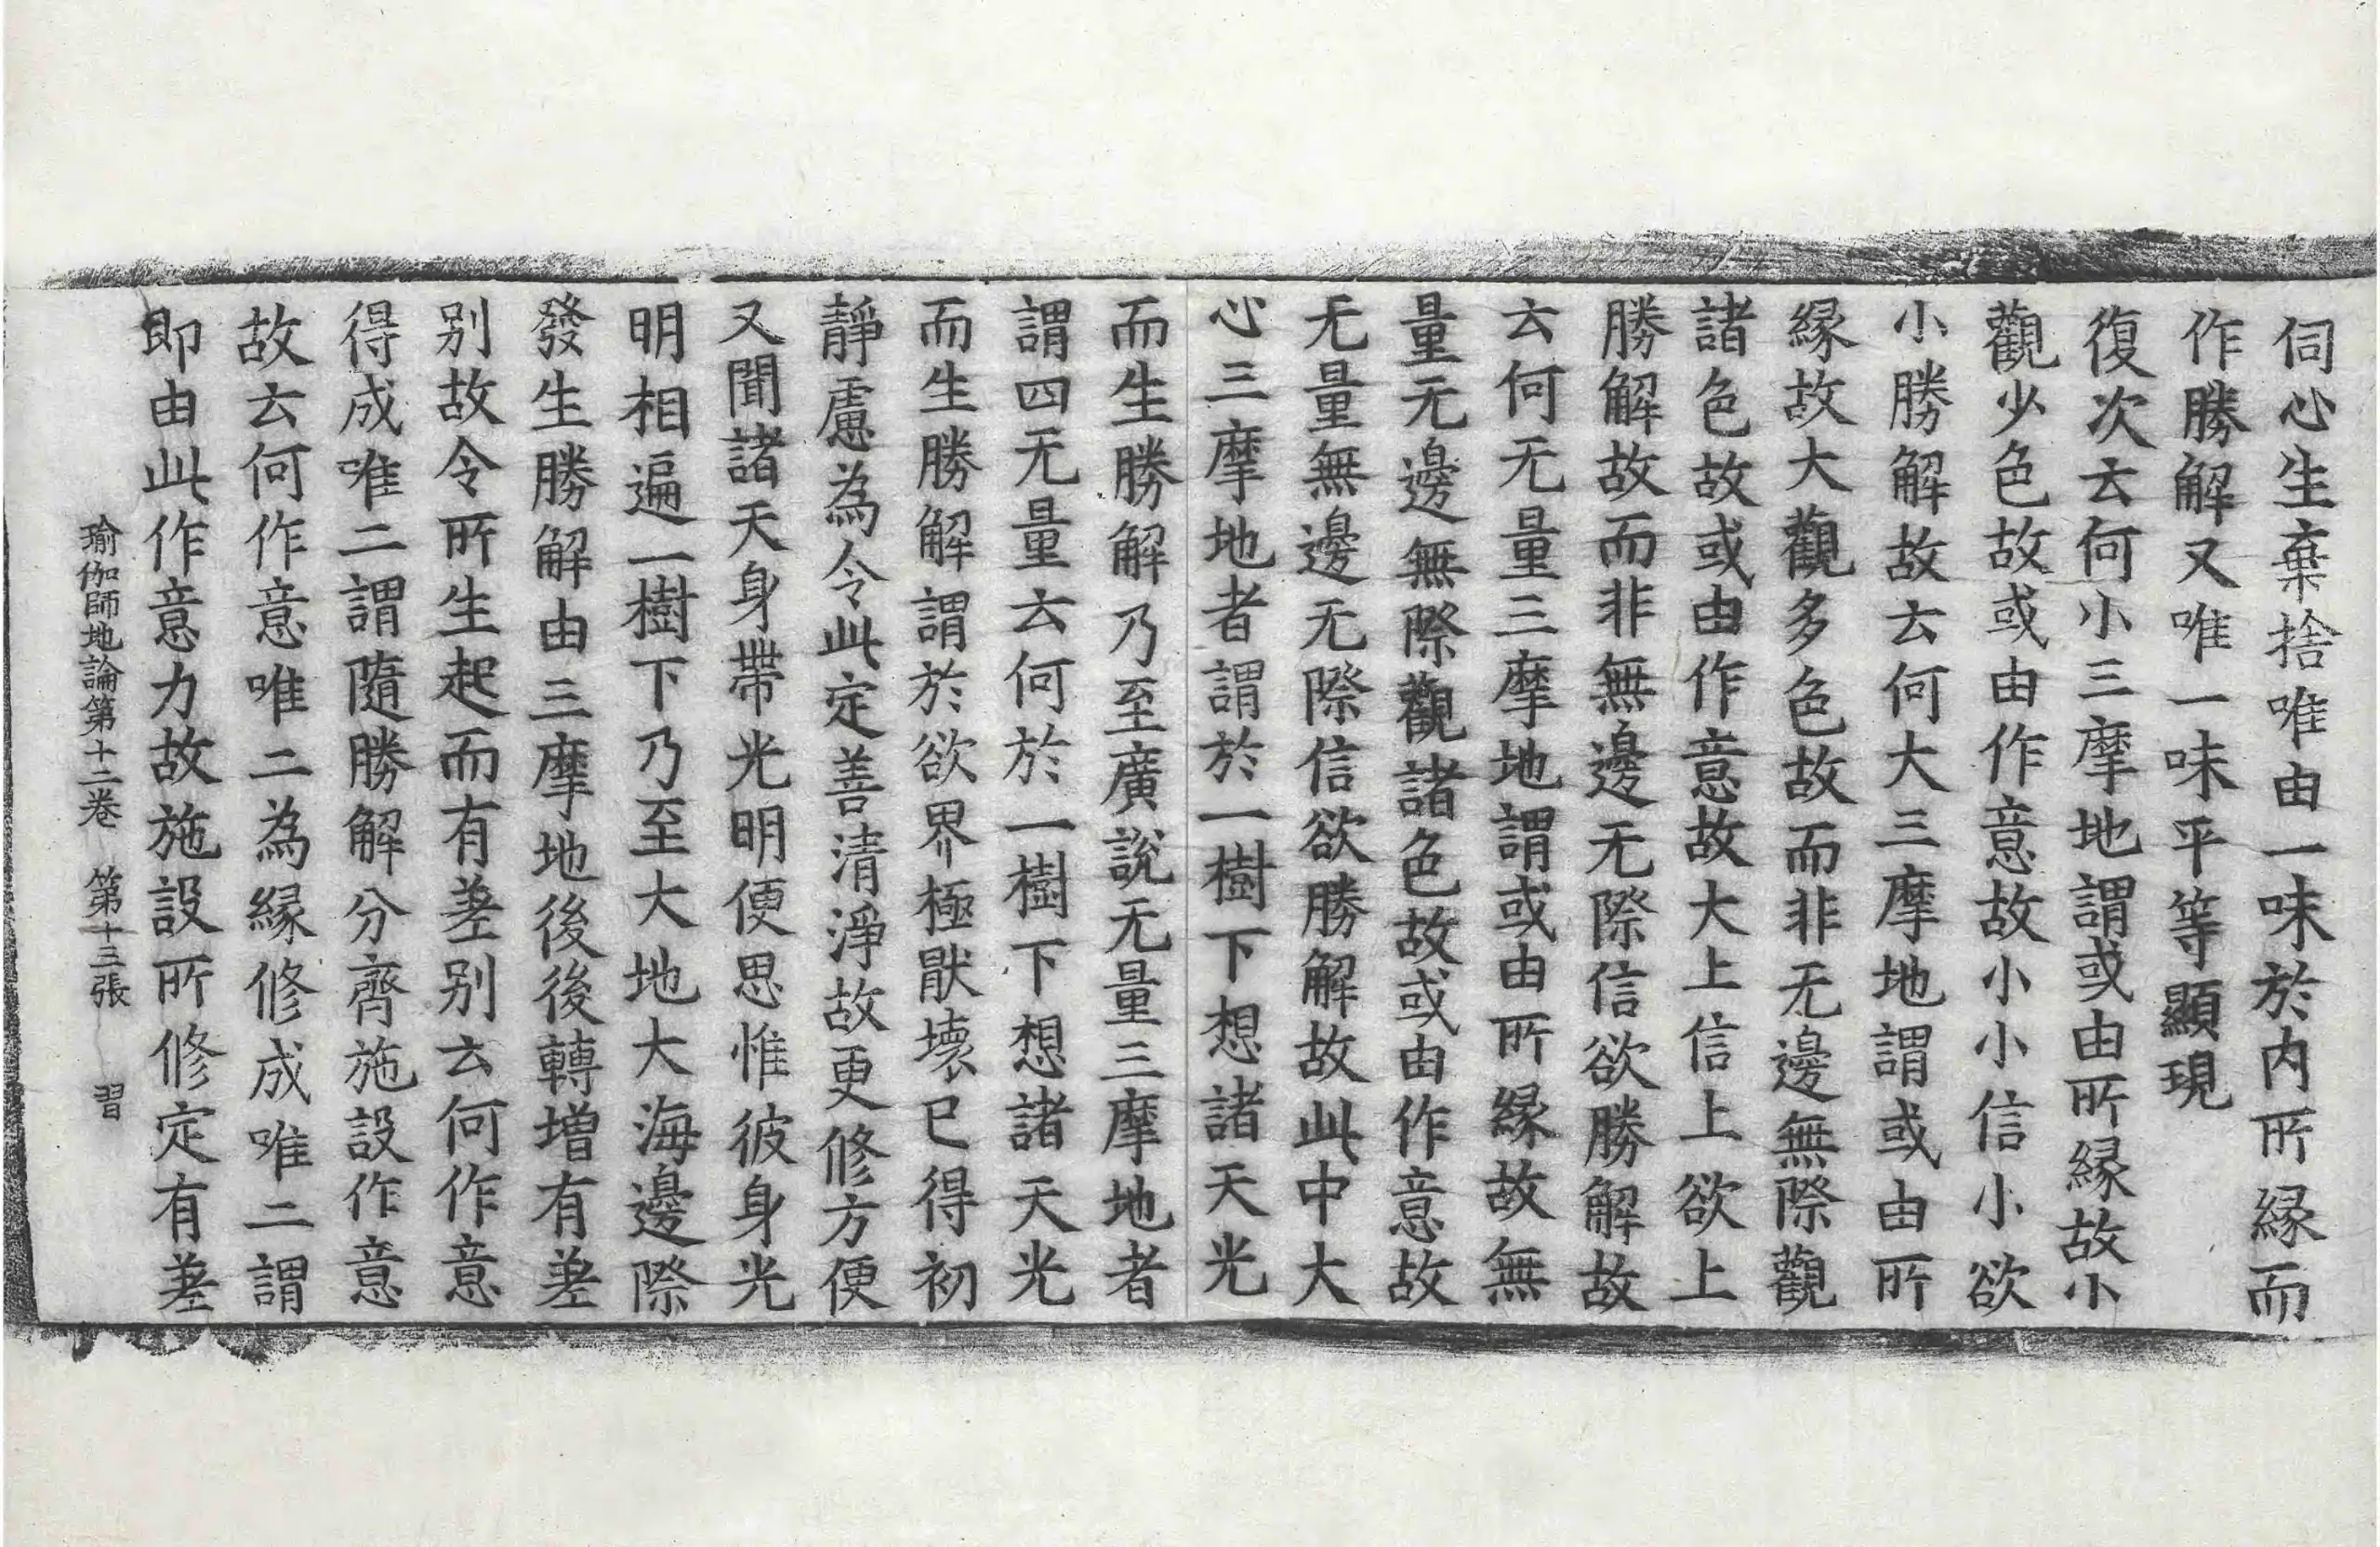 伺心生棄捨唯由一味於内所縁而
作勝解又唯一味平等顯現
復次云何小三摩地謂或由所縁故小
觀少色故或由作意故小小信小欲
小勝解故云何大三摩地謂或由所
縁故大觀多色故而非无邊無際觀
諸色故或由作意故大上信上欲上
勝解故而非無邊无際信欲勝解故
云何无量三摩地謂或由所縁故無
量无邊無際觀諸色故或由作意故
无量無邊无際信欲勝解故此中大
心三摩地者謂於一樹下想諸天光
而生勝解乃至廣說无量三摩地者
謂四无量云何於一樹下想諸天光
而生勝解謂於欲界極猒壞已得初
靜慮為令此定善清淨故更修方便
又聞諸天身帶光明便思惟彼身光
明相遍一樹下乃至大地大海邊際
發生勝解由三摩地後後轉增有差
别故令所生起而有差别云何作意
得成唯二謂隨勝解分齊施設作意
故云何作意唯二為縁修成唯二謂
即由此作意力故施設所修定有差
瑜伽師地論第十二卷 第十三張 習